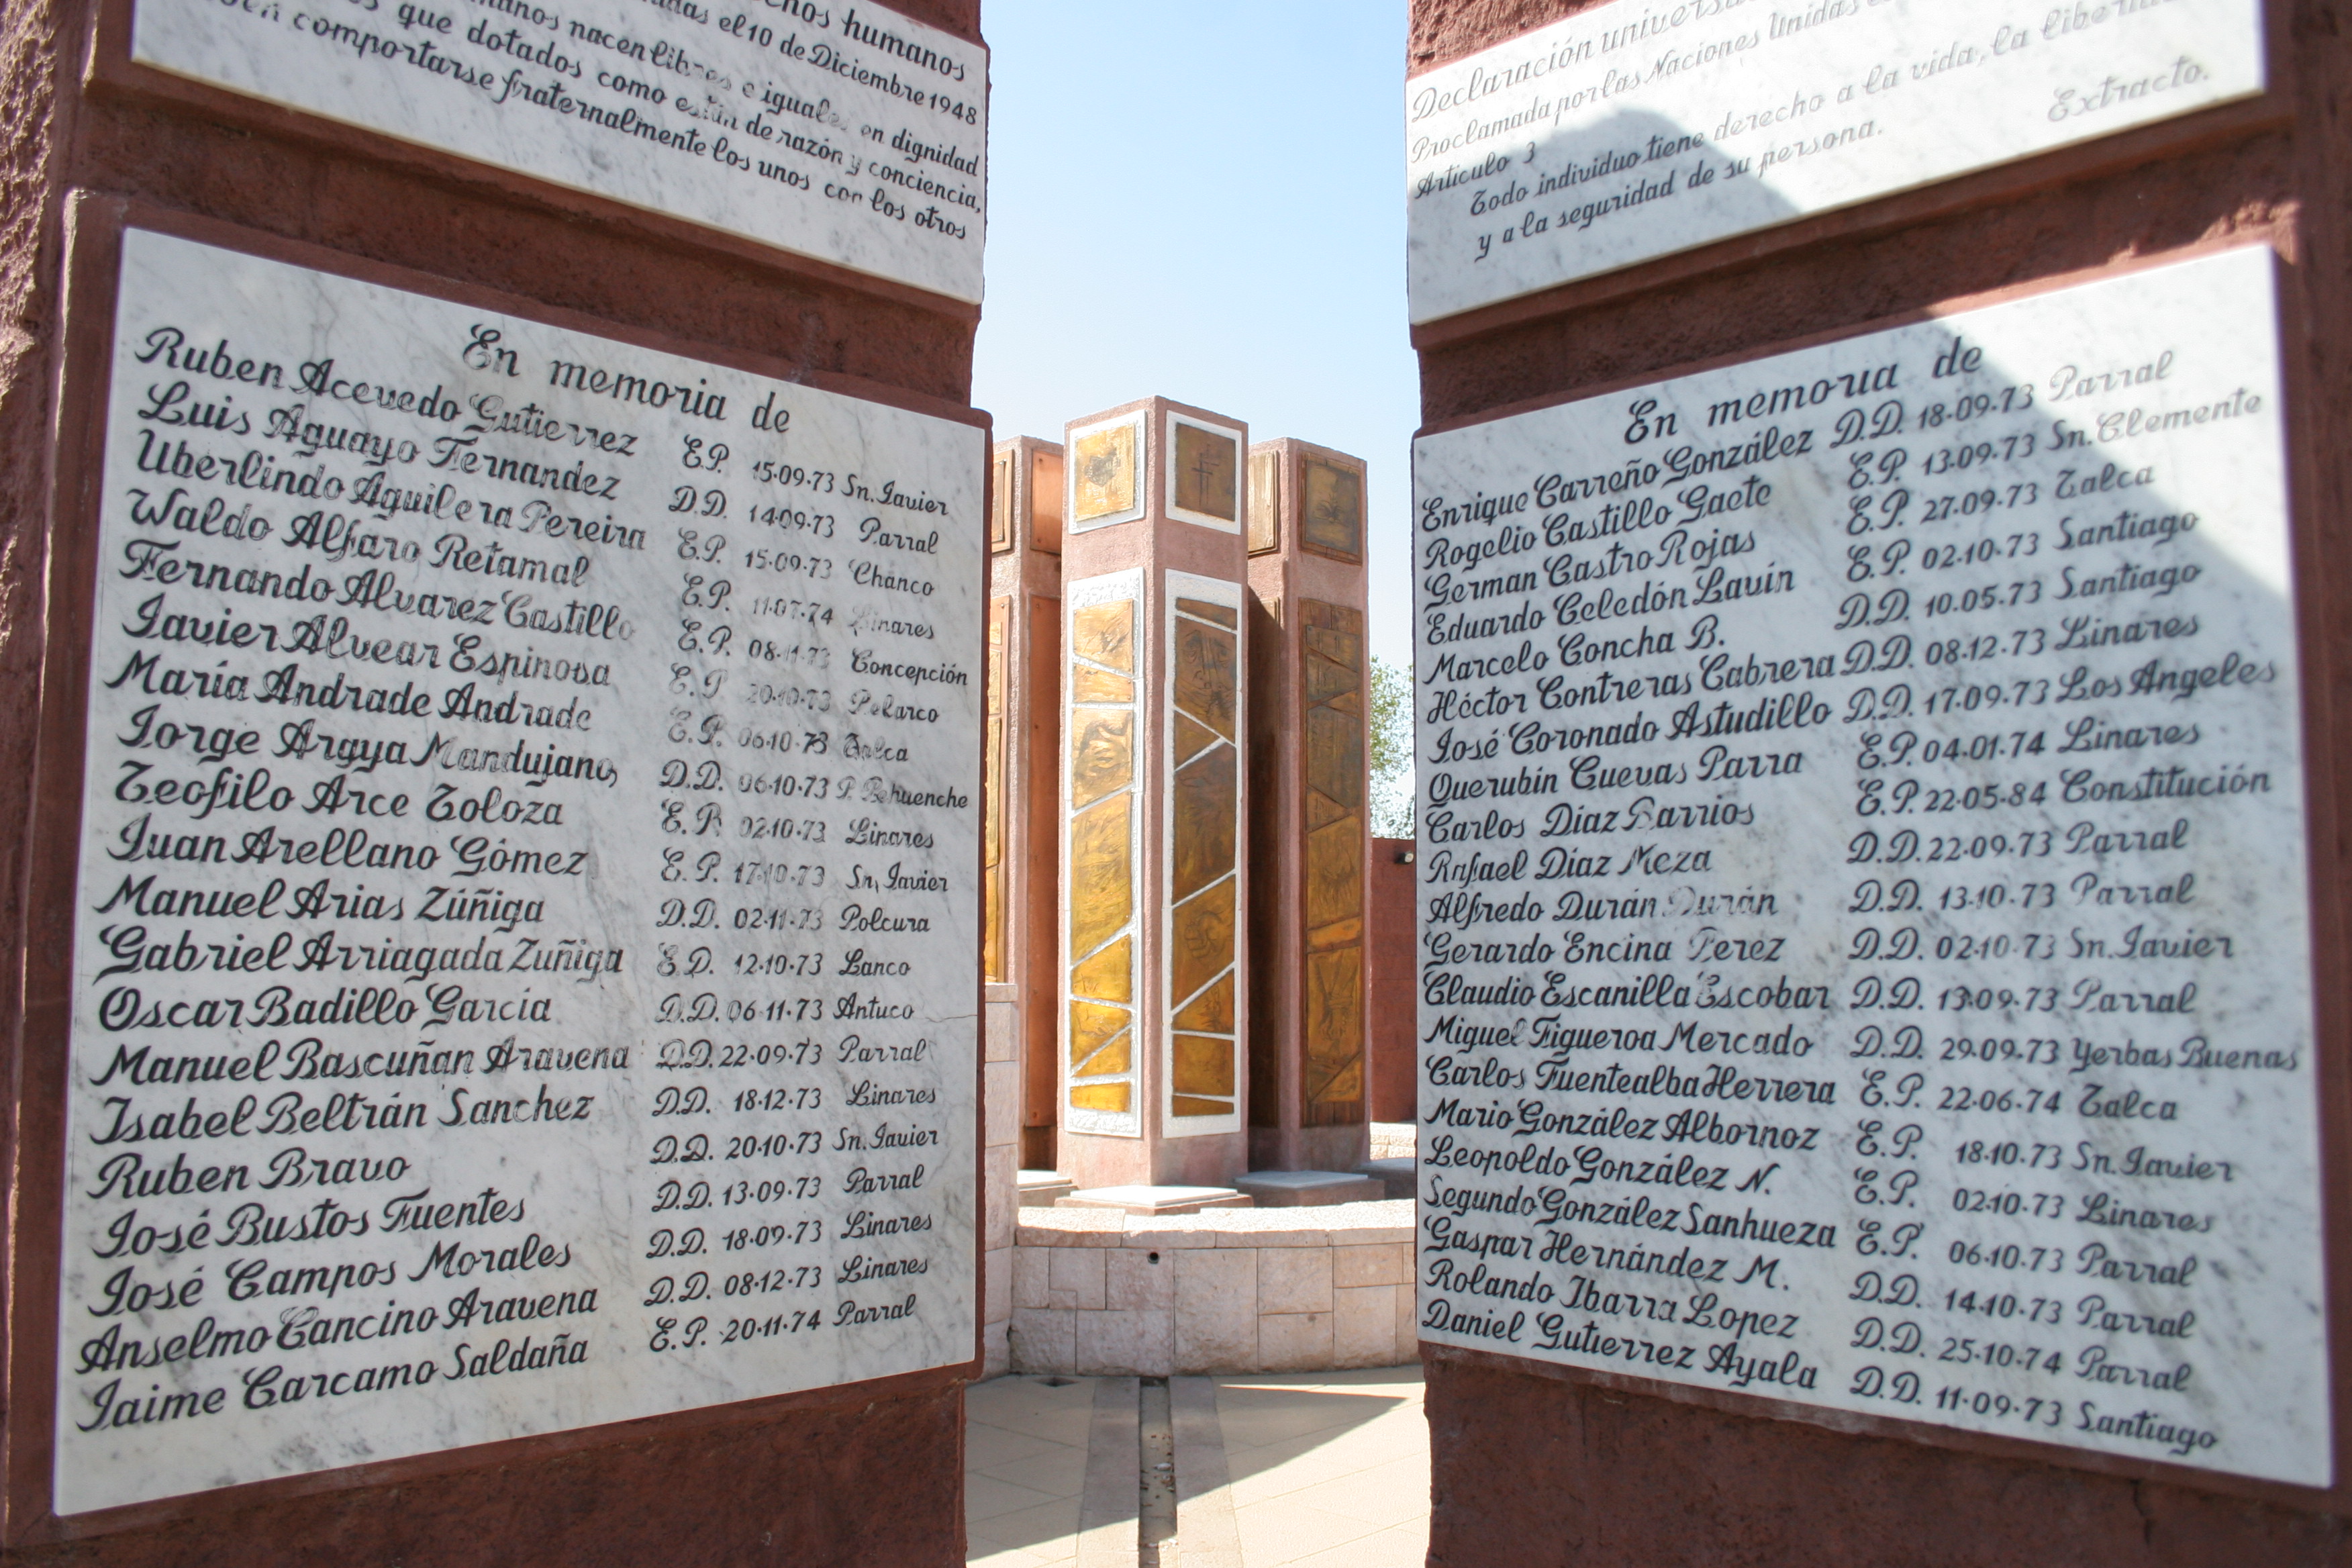 humanos
el 10 de Diciembre 1948
nacen libres e iguales en dignidad
que dotados como están de razón y conciencia,
comportarse fraternalmente los unos con los otros
En memoria de
Ruben Acevedo Gutierrez E.P. 15·09·73 Sn. Javier
Luis Aguayo Fernandez D.D. 14·09·73 Parral
Uberlindo Aguilera Pereira E.P. 15·09·73 Chanco
Waldo Alfaro Retamal E.P. 11·07·74 Linares
Fernando Alvarez Castillo E.P. 08·11·73 Concepción
Javier Alvear Espinosa E.P. 20·10·73 Pelarco
María Andrade Andrade E.P. 06·10·73 Talca
Jorge Araya Mandujano D.D. 06·10·73 P. Pehuenche
Teofilo Arce Toloza E.P. 02·10·73 Linares
Juan Arellano Gómez E.P. 17·10·73 Sn, Javier
Manuel Arias Zúñiga D.D. 02·11·73 Polcura
Gabriel Arriagada Zuñiga E.D. 12·10·73 Lanco
Oscar Badillo García D.D. 06·11·73 Antuco
Manuel Bascuñan Aravena D.D. 22·09·73 Parral
Isabel Beltrán Sanchez D.D. 18·12·73 Linares
Ruben Bravo D.D. 20·10·73 Sn. Javier
José Bustos Fuentes D.D. 13·09·73 Parral
José Campos Morales D.D. 18·09·73 Linares
Anselmo Cancino Aravena D.D. 08·12·73 Linares
Jaime Carcamo Saldaña E.P. 20·11·74 Parral
Declaración
Proclamada por las Naciones Unidas
Articulo 3
Todo individuo tiene derecho a la vida, la
y a la seguridad de su persona.
Extracto.
En memoria de
Enrique Carreño González D.D. 18·09·73 Parral
Rogelio Castillo Gaete E.P. 13·09·73 Sn. Clemente
German Castro Rojas E.P. 27·09·73 Talca
Eduardo Celedón Lavín E.P. 02·10·73 Santiago
Marcelo Concha B. D.D. 10·05·73 Santiago
Héctor Contreras Cabrera D.D. 08·12·73 Linares
José Coronado Astudillo D.D. 17·09·73 Los Angeles
Querubín Cuevas Parra E.P. 04·01·74 Linares
Carlos Díaz Barrios E.P. 22·05·84 Constitución
Rafael Díaz Meza D.D. 22·09·73 Parral
Alfredo Durán Durán D.D. 13·10·73 Parral
Gerardo Encina Perez D.D. 02·10·73 Sn. Javier
Claudio Escanilla Escobar D.D. 13·09·73 Parral
Miguel Figueroa Mercado D.D. 29·09·73 Yerbas Buenas
Carlos Fuentealba Herrera E.P. 22·06·74 Talca
Mario González Albornoz E.P. 18·10·73 Sn. Javier
Leopoldo González N. E.P. 02·10·73 Linares
Segundo González Sanhueza E.P. 06·10·73 Parral
Gaspar Hernández M. D.D. 14·10·73 Parral
Rolando Ibarra Lopez D.D. 25·10·74 Parral
Daniel Gutierrez Ayala D.D. 11·09·73 Santiago